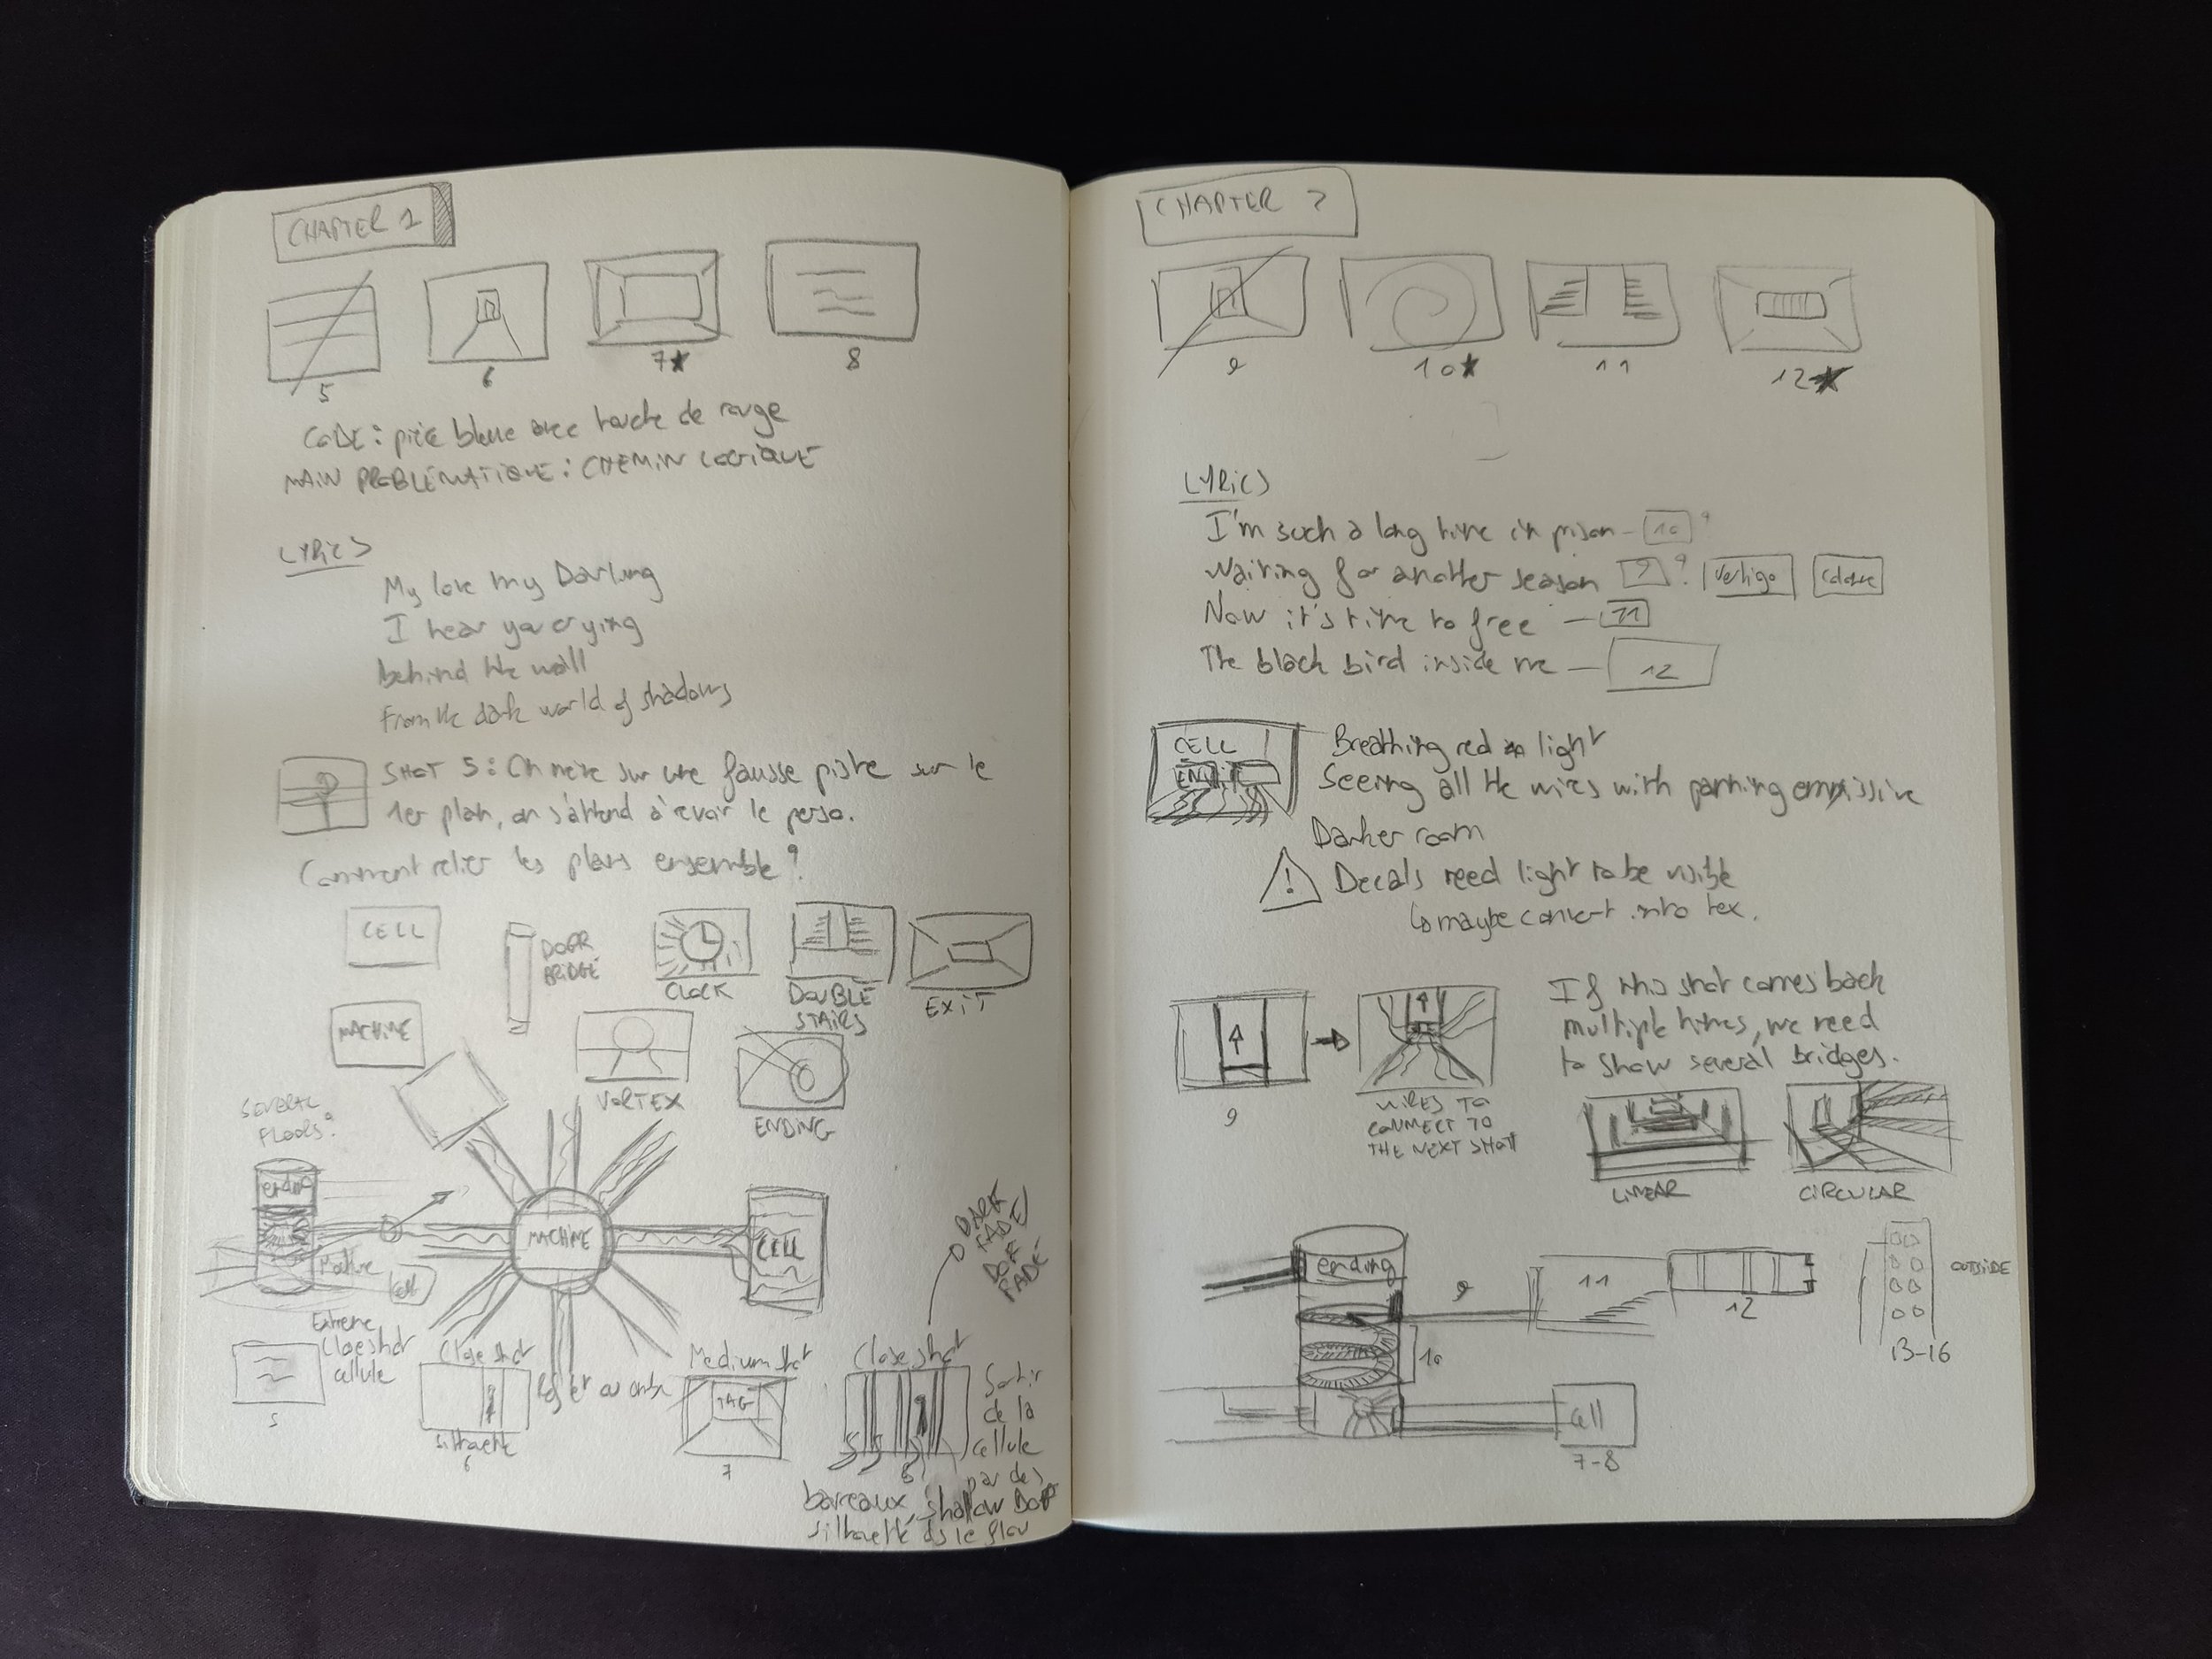 CHAPTER 1
5
6
7
8
CODE: pièce bleue avec touche de rouge
MAIN PROBLÉMATIQUE: CHEMIN LOGIQUE
LYRICS
My love my Darling
I hear you crying
behind the wall
from the dark world of shadows
SHOT 5: On mène sur une fausse piste sur le
1er plan, on s'attend à revoir le perso.
Comment relier les plans ensemble?
CELL
DOOR
BRIDGE
CLOCK
DOUBLE
STAIRS
EXIT
MACHINE
VORTEX
ENDING
SEVERAL
FLOORS?
ending
Machine
Cell
MACHINE
CELL
DARK
FADE/
DOF
FADE
Extreme
Close shot
cellule
5
Close shot
Reflet ou ombre
silhouette
6
Medium shot
TAG
7
Close shot
8
Sortir
de la
cellule
par des
barreaux, shallow DOF
silhouette ds le flou
CHAPTER 2
9
10
11
12
LYRICS
I'm such a long time in prison - 10?
Waiting for another season 9? Vertigo
Now it's time to free - 11
The black bird inside me - 12
CELL
Breathing red light
Seeing all the wires with panning emissive
Darker room
! Decals need light to be visible
maybe convert into tex.
9
WIRES TO
CONNECT TO
THE NEXT SHOT
If this shot comes back
multiple times, we need
to show several bridges.
LINEAR
CIRCULAR
ending
9
11
12
OUTSIDE
13-16
10
cell
7-8